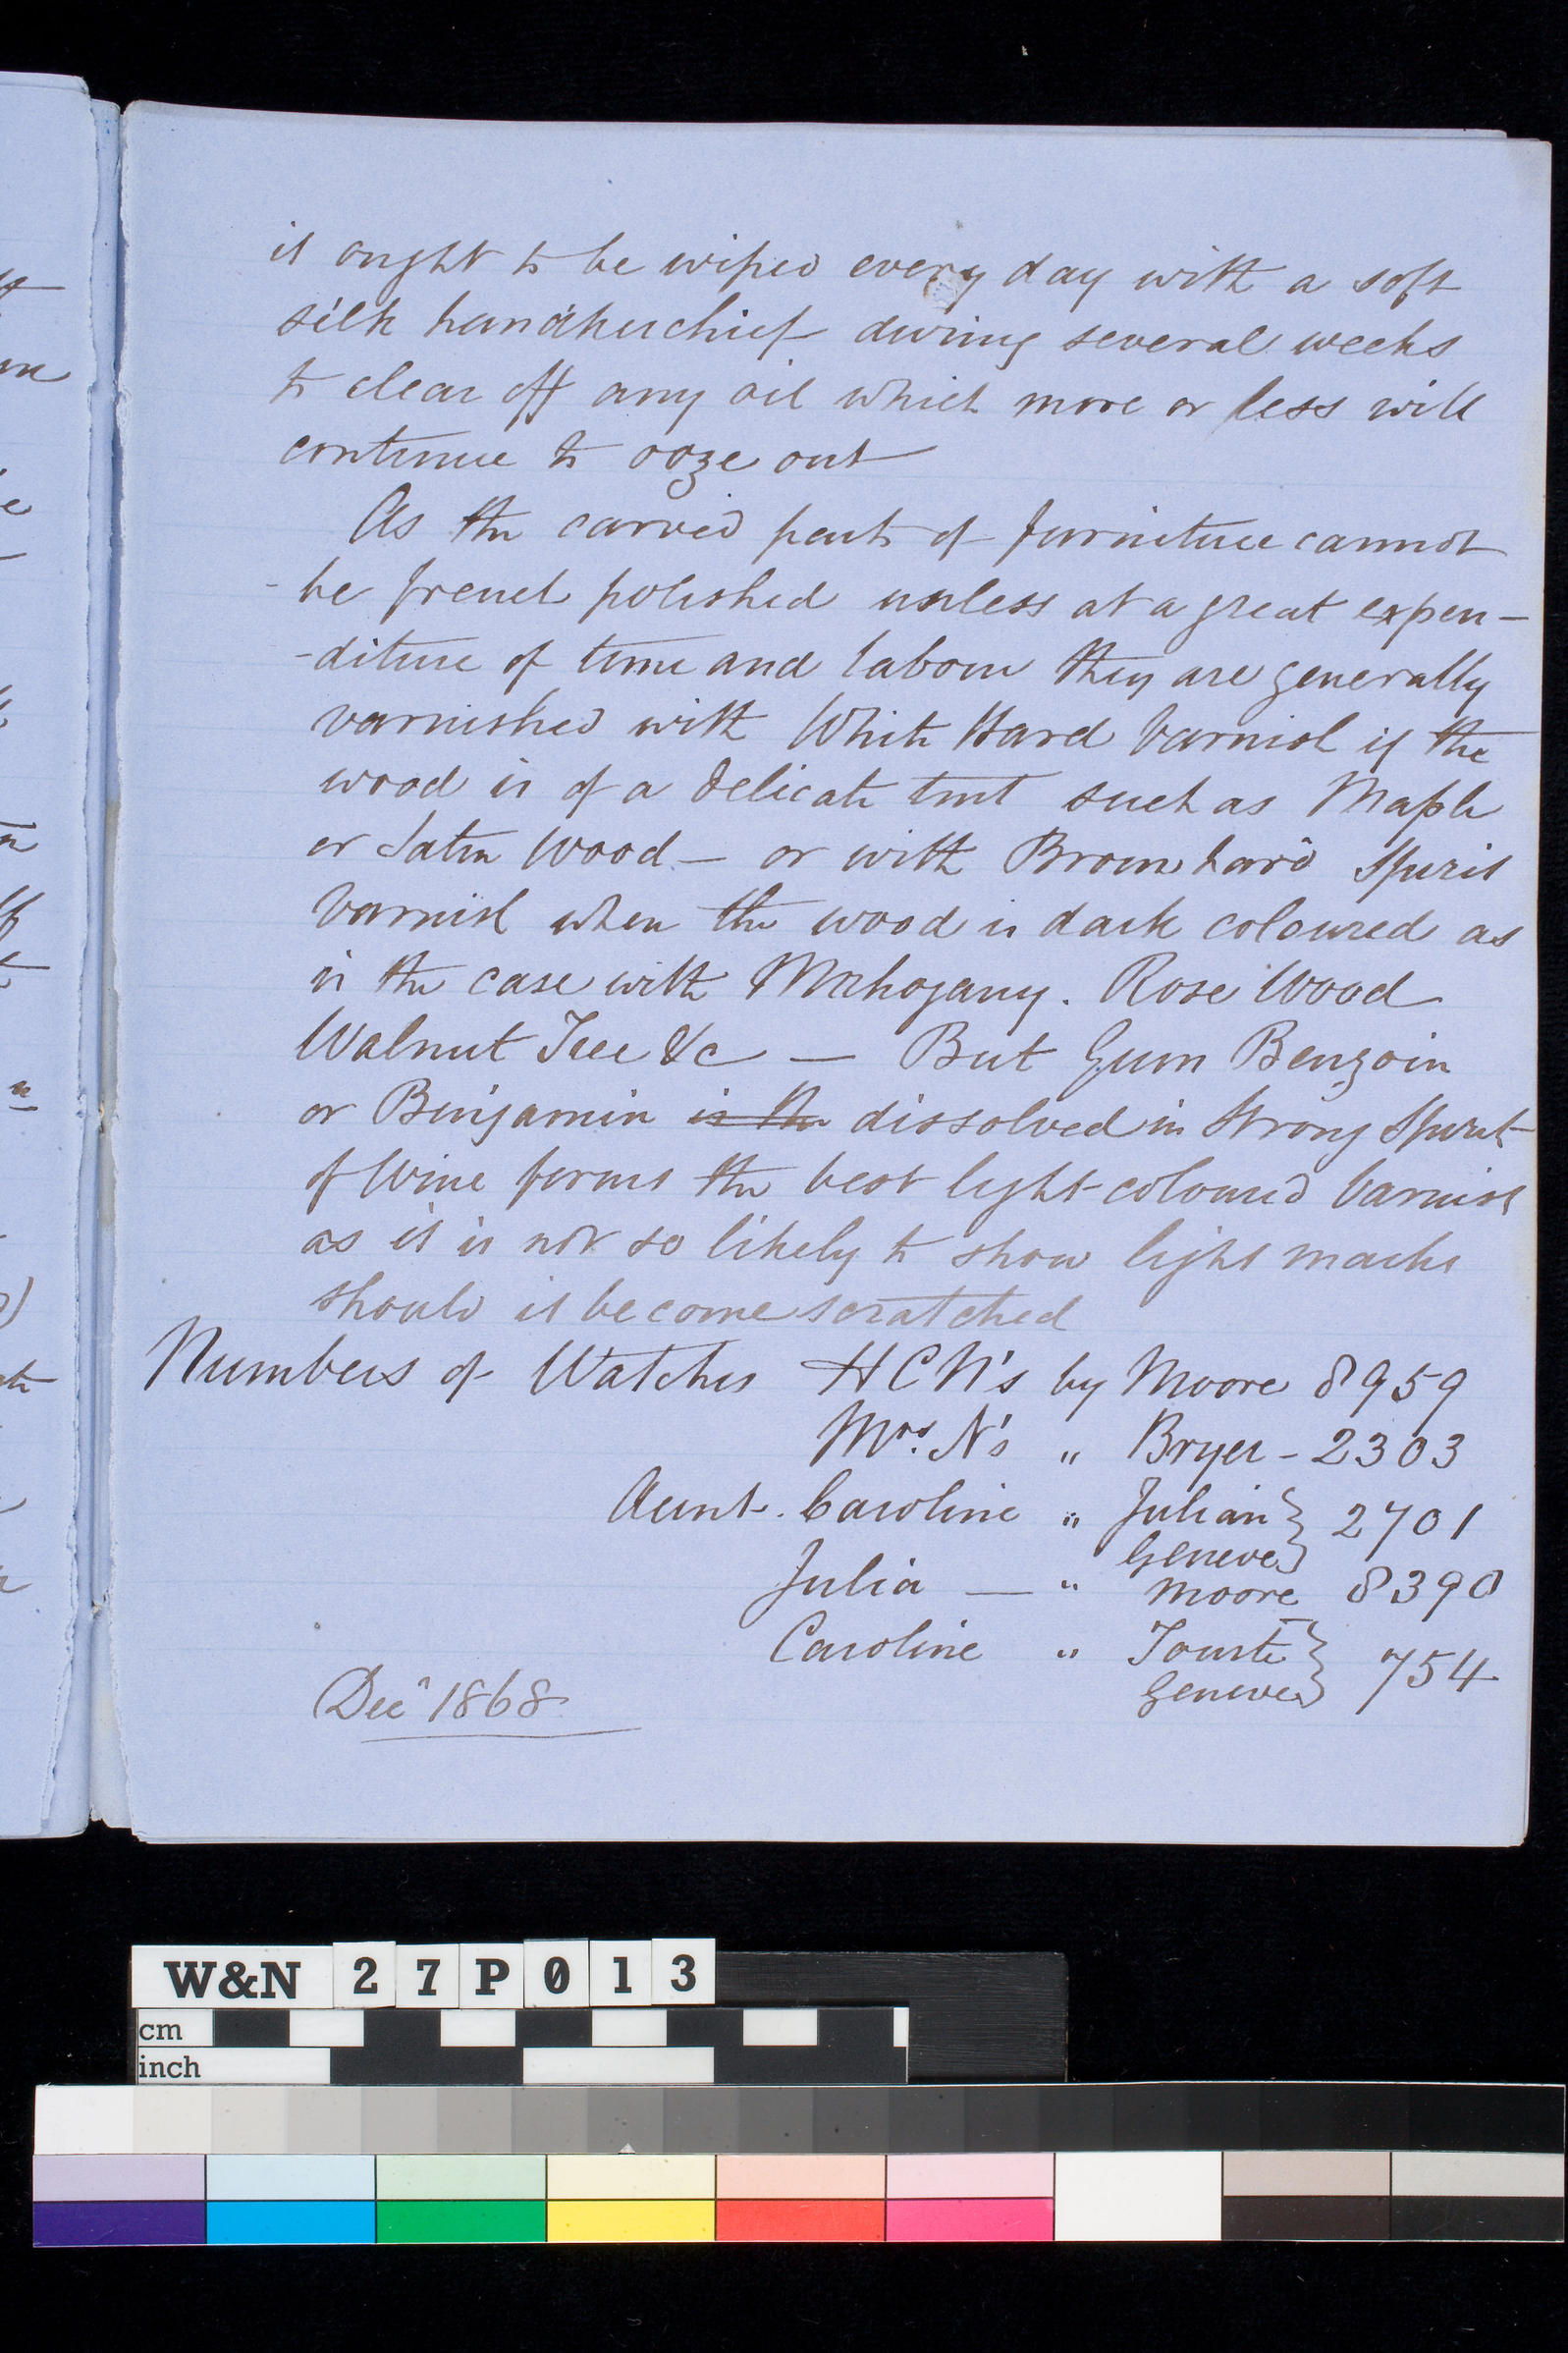 it ought to be wiped every day with a soft
silk handkerchief during several weeks
to clear off any oil which more or less will
continue to ooze out
As the carved parts of furniture cannot
- be french polished unless at a great expen-
-diture of time and labour they are generally
varnished with White Hard Varnish if the
wood is of a delicate tint such as Maple
or Satin Wood - or with Brown hard Spirit
Varnish when the wood is dark coloured as
is the case with Mahogany. Rose Wood
Walnut Tree &c — But Gum Benzoin
or Benjamin is the dissolved in Strong Spirit
of Wine forms the best light-coloured Varnish
as it is not so likely to show light marks
should it become scratched
Numbers of Watches HCN's by Moore 8959
Mrs. N's " Bryer - 2303
Aunt. Caroline " Julian } 2701
Geneve
Julia — " Moore 8390
Caroline " } 754
Geneve
Decr 1868
W&N 27P013
cm
inch